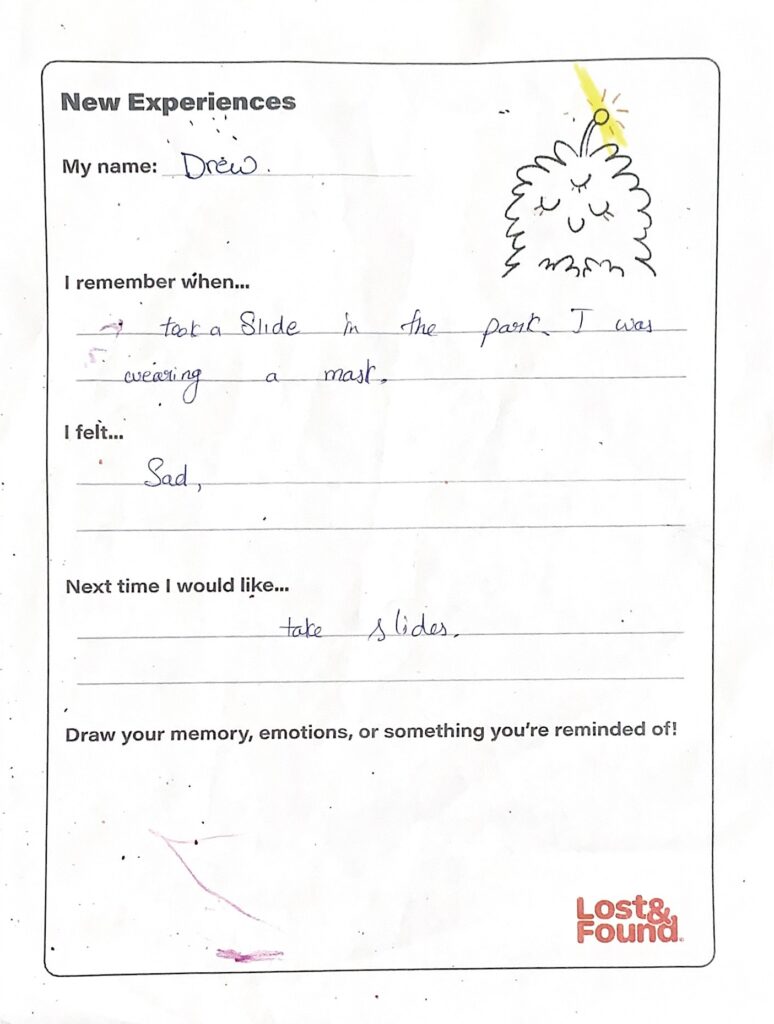 New Experiences
My name: Drew.
I remember when...
took a Slide in the park. I was
wearing a mask.
I felt...
Sad,
Next time I would like...
take slides.
Draw your memory, emotions, or something you're reminded of!
Lost&
Found.